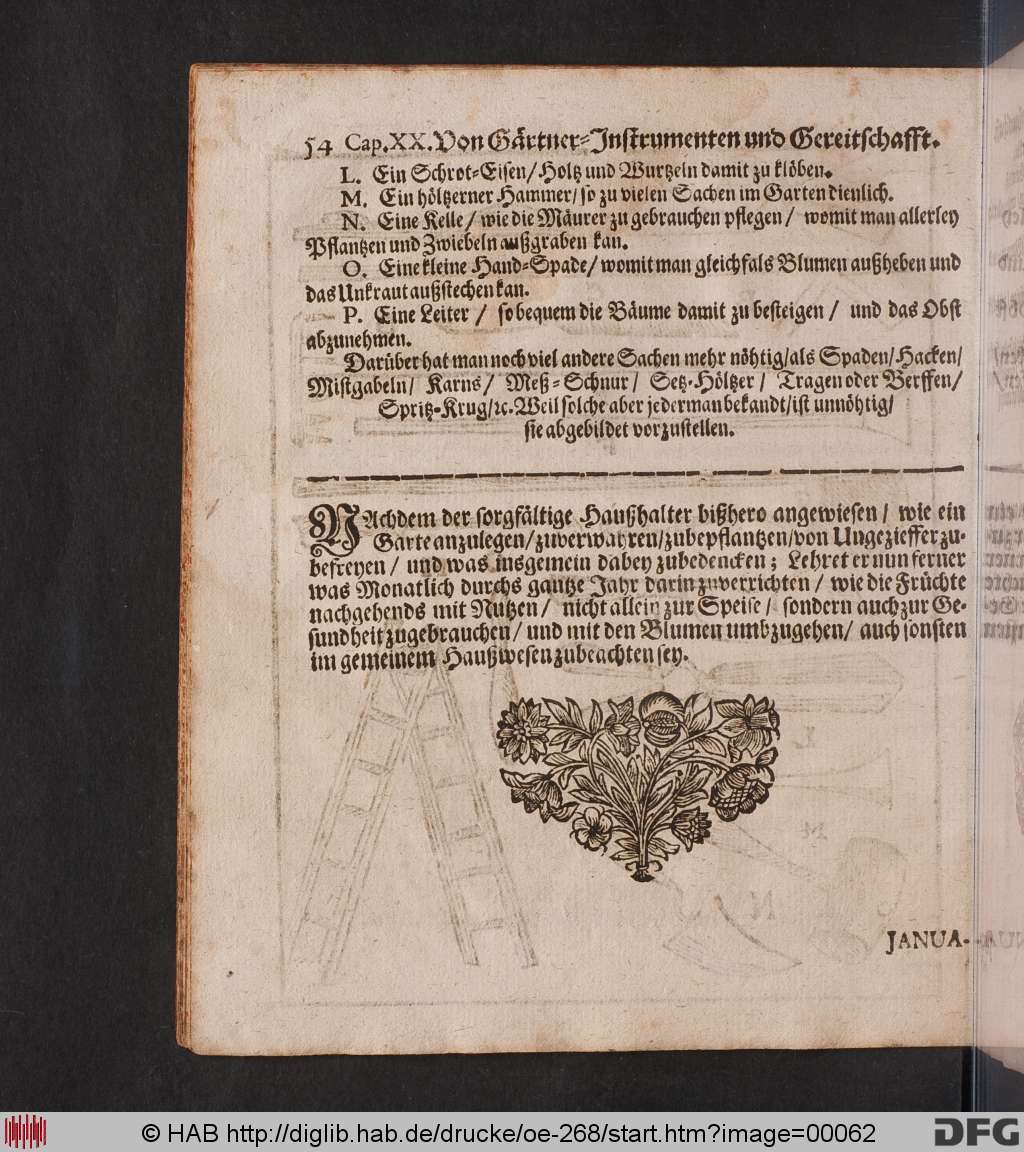 54 Cap. XX. Von Gärtner-Instrumenten und Gereitschafft.
L. Ein Schrot-Eisen/ Holtz und Wurtzeln damit zu klöben.
M. Ein höltzerner Hammer/ so zu vielen Sachen im Garten dienlich.
N. Eine Kelle/ wie die Mäurer zu gebrauchen pflegen/ womit man allerley
Pflantzen und Zwiebeln außgraben kan.
O. Eine kleine Hand-Spade/ womit man gleichfals Blumen außheben und
das Unkraut außstechen kan.
P. Eine Leiter/ so bequem die Bäume damit zu besteigen/ und das Obst
abzunehmen.
Darüber hat man noch viel andere Sachen mehr nöhtig/ als Spaden/ Hacken/
Mistgabeln/ Karns/ Meß-Schnur/ Setz-Höltzer/ Tragen oder Berffen/
Spritz-Krug/ ꝛc. Weil solche aber jederman bekandt/ ist unnöhtig/
sie abgebildet vorzustellen.
NAchdem der sorgfältige Haußhalter bißhero angewiesen/ wie ein
Garte anzulegen/ zuverwahren/ zubepflantzen/ von Ungezieffer zu-
befreyen/ und was insgemein dabey zubedencken; Lehret er nun ferner
was Monatlich durchs gantze Jahr darin zuverrichten/ wie die Früchte
nachgehends mit Nutzen/ nicht allein zur Speise/ sondern auch zur Ge-
sundheit zugebrauchen/ und mit den Blumen umbzugehen/ auch sonsten
im gemeinem Haußwesen zubeachten sey.
JANUA-
© HAB http://diglib.hab.de/drucke/oe-268/start.htm?image=00062
DFG